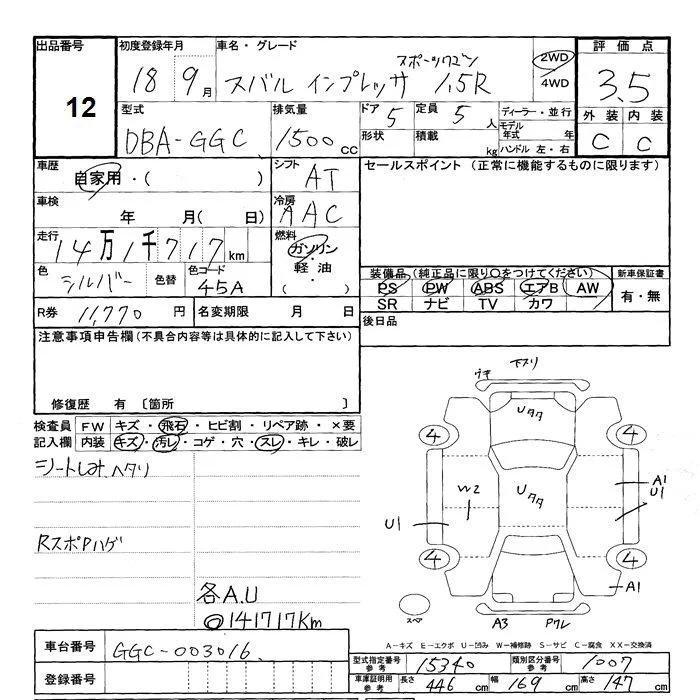 出品番号
12
初度登録年月
18 9月
車名・グレード
スバル インプレッサ スポーツワゴン 1.5R
2WD
4WD
評価点
3.5
外装 内装
C C
型式
DBA-GGC
排気量
1500cc
ドア 5
定員 5人
形状
積載 kg
ディーラー・並行
モデル年式 年
ハンドル 左・右
車歴
自家用・( )
シフト
AT
セールスポイント (正常に機能するものに限ります)
車検
年 月( 日)
冷房
AAC
走行
14万1千717km
燃料
ガソリン
軽油
( )
色
シルバー
色替
色コード
45A
装備品(純正品に限り○をつけてください)
PS PW ABS エアB AW
SR ナビ TV カワ
新車保証書
有・無
R券 11,770円
名変期限 月 日
後日品
注意事項申告欄(不具合内容等は具体的に記入して下さい)
修復歴 有 〔箇所 〕
検査員記入欄
FW キズ・飛石・ヒビ割・リペア跡・×要
内装 キズ・汚レ・コゲ・穴・スレ・キレ・破レ
RスポPハゲ
各A.U
◎141717Km
下スリ
ウキ
Uタタ
4 4
W2
Uタタ
A1
U1
U1
4 4
A1
スペア
A3 Pワレ
A-キズ E-エクボ U-凹み W-補修跡 S-サビ C-腐食 XX-交換済
車台番号
GGC-003016
登録番号
型式指定番号参考
15340
類別区分番号参考
1007
車庫証明用参考
長さ 446cm
幅 169cm
高さ 147cm